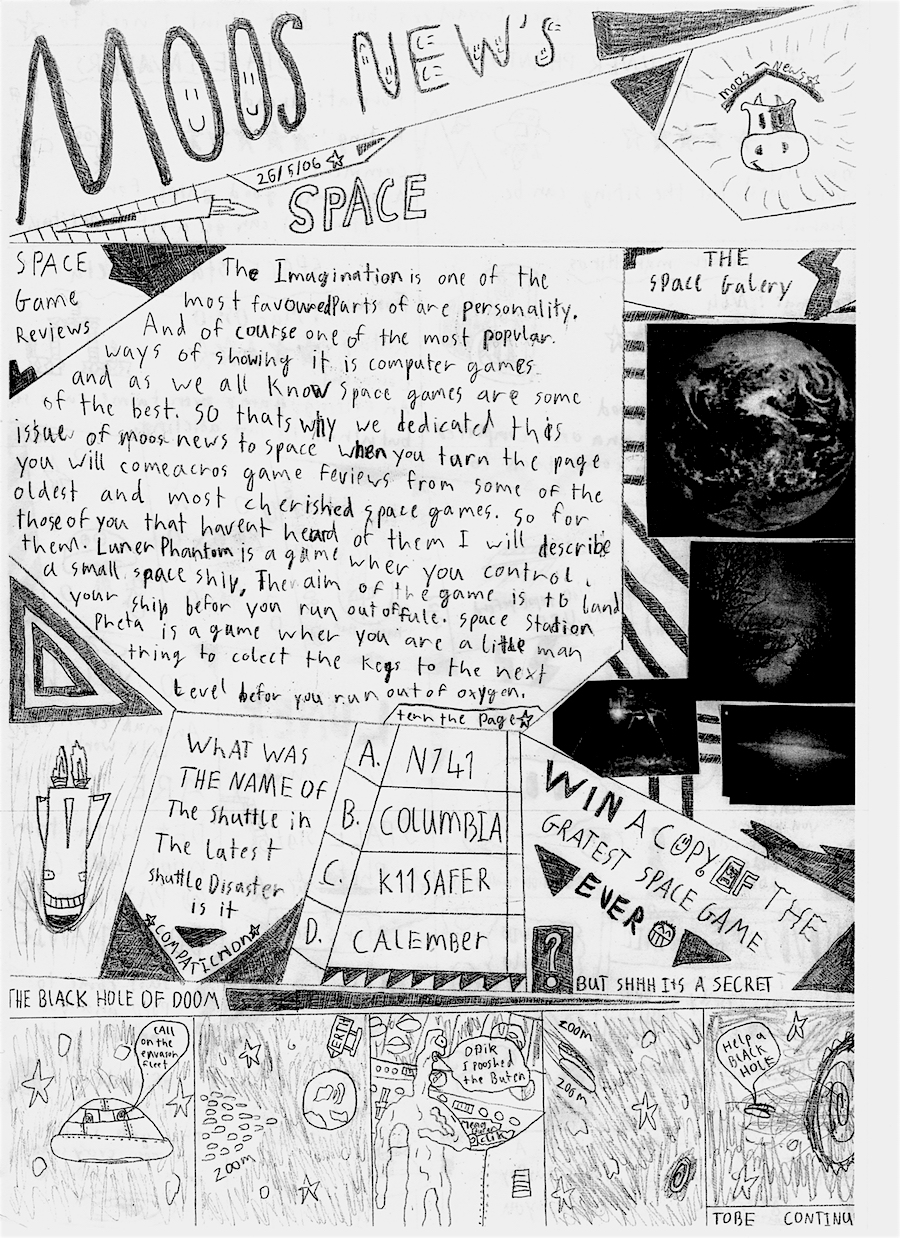 MOOS NEW'S
MOOS NEWS
26/5/06
SPACE
SPACE
Game
Reviews
The Imagination is one of the
most favouredParts of are personality.
And of course one of the most popular.
ways of showing it is computer games.
and as we all know space games are some
of the best. SO thats why we dedicated this
issue of moos news to space when you turn the page
you will comeacros game reviews from some of the
oldest and most cherished space games. So for
those of you that havent heard of them I will describe
them. Luner Phantom is a game wher you control
a small space ship, The aim of the game is to land
your ship befor you run out of fule. Space Station
Pheta is a game wher you are a little man
trying to colect the Keys to the next
Level befor you run out of oxygen.
tern the Page
THE
Space Galery
WHAT WAS
THE NAME OF
The Shuttle in
The Latest
Shuttle Disaster
is it
COMPATICNON
A. N741
B. COLUMBIA
C. K11SAFER
D. CALEMBER
WIN A COPY OF THE
GRATEST SPACE GAME
EVER
?
BUT SHHH ITS A SECRET
THE BLACK HOLE OF DOOM
CALL
on the
envasion
fleet
ERTH
ZOOM
I pooshed
the Buten
zoom
zoom
Help a
BLACK
HOLE
TOBE CONTINU